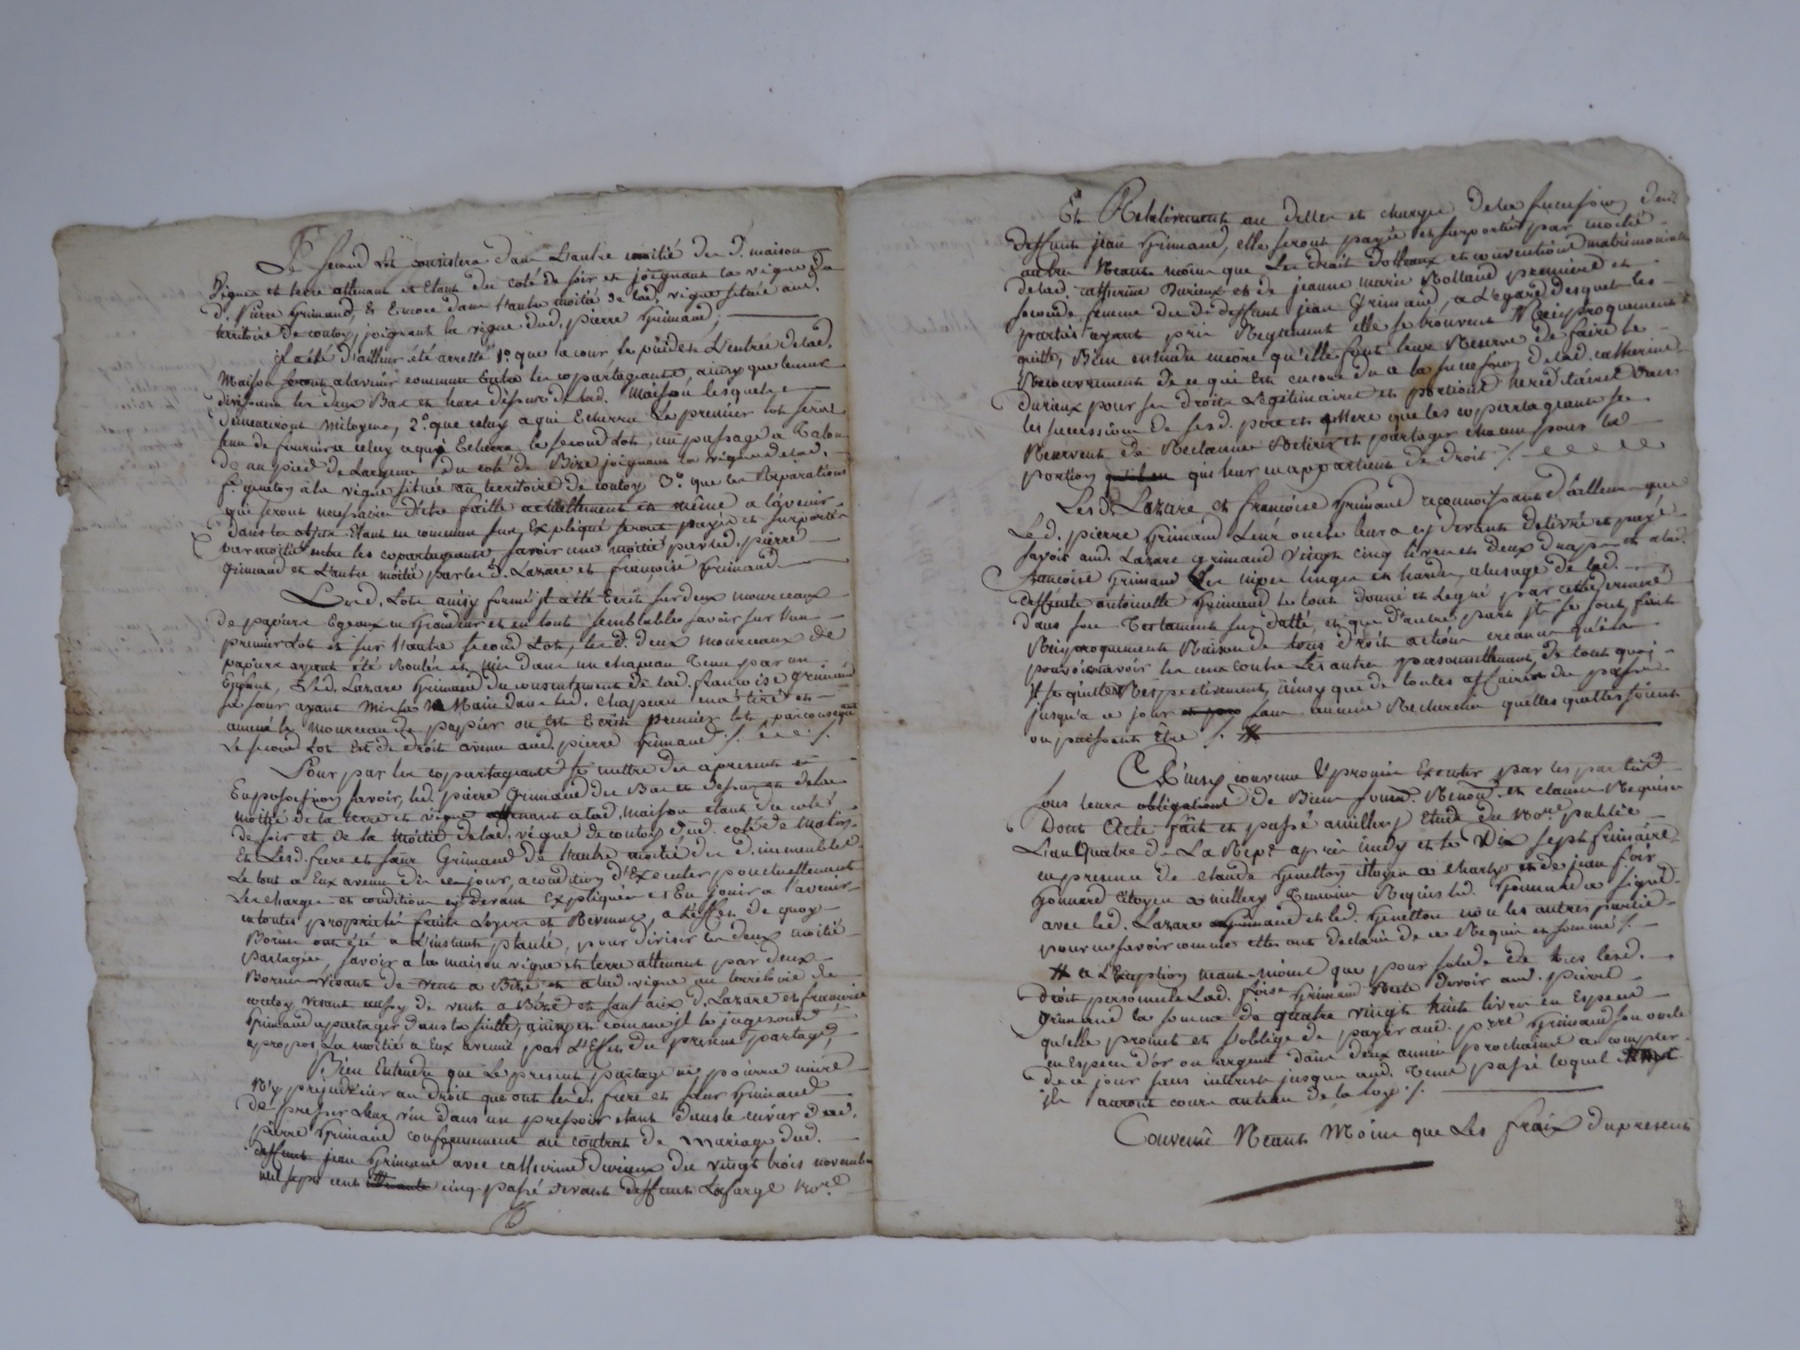 Le second Lot consistera dans L'autre moitié des d. maison
Vignes et terre attenant et Etant du coté de soir et joignant la vigne du
d. Pierre Grimaud, & Encore dans l'autre moitié de lad. vigne située aud.
territoire de coutoy, joignant la vigne dud. pierre Grimaud,
jl a été d'ailleur été arresté 1o. que la cour, le puid et L'entrée de lad.
Maison seront alavenir commune Entre les copartageants, ainsy que le mur
divisant les deux Bas et hars dessus de lad. Maison lesquels
demeureront mitoyens, 2o. que celuy a qui Echerra le premier lot sera
tenu de fournir a celuy a qui Echerra le second Lot, un passage a Talon
de un pied de Largeur du coté de Bize joignant la vigne de lad.
f. gueton a la vigne située au territoire de coutoy 3o. que les Reparations
qui seront necessaires d'être faitte actuellement et même a l'avenir
dans les objets Etant en commun sus Expliqué seront payés et suportés
par moitié entre les copartageants, savoir une moitié par led. pierre
Grimaud et L'autre moitié par les d. Lazare et françoise Grimaud
Les d. Lots ainsy formé jl a été Ecrit sur deux mourceaux
de papiers Egeaux en Grandeur et en tout semblables savoir sur l'un
premier Lot et sur l'autre second Lot, les d. deux mourceaux de
papiers ayant été Roulés et mis dans un chapeau Tenu par un
Enfant, Led. Lazare Grimaud du consentement de lad. francoise Grimaud
sa sœur ayant mis sa Main dans led. chapeau en a tiré et
amené le mourceau de papier ou est Ecrit premier lot, par consequent
Le second Lot Est de droit avenu aud. pierre Grimaud ./.
Pour par les copartageants se mettre dès apresent en
En possession savoir, led. pierre Grimaud des Bas et dessus et de la
moitié de la terre et vigne attenant a lad. maison etant du coté
de soir et de la moitié de lad. vigne de coutoy dud. coté de Matin
Et Les d. frere et sœur Grimaud de l'autre moitié des d. immeubles
Le tout a Eux avenu dès ce jour, a condition d'Executer ponctuellement
Les charges et conditions cy devant Expliquées et En jouir a l'avenir
en toutes proprieté fruits Loyers et Revenus, a L'effet de quoy
Bornes ont été a L'instant planté, pour diviser les deux moitié
partagées, savoir a la maison vigne et terre attenant par deux
Bornes visant de vent a Bize et a lad. vigne au territoire de
coutoy visant aussy de vent a Bize et sauf aux d. Lazare et francoise
Grimaud a partager dans la suitte, ainsy et comme jl le jugeront
apropos La moitié a Eux avenue par L'Effet du present partage,
Bien Entendu que Le present partage ne pourra nuire
N'y prejudicier au droit que ont led. frere et sœur Grimaud
de presser Leur vin dans un pressoir etant dans le cuvier dud.
pierre Grimaud conformement au contrat de Mariage dud.
deffunt jean Grimaud avec catherine Durieux du vingt trois novembre
mil sept cent cinq passé devant deffunt Lafarge nore.
Et Relativement au dettes et charges de la succession dud.
deffunt jean Grimaud, elle seront payés et suportés par moitié
entre Neants moins que les droit dotteaux et conventions matrimoniales
de lad. catherine Durieux et de jeanne marie Rolland premiere et
seconde femme du d. deffunt jean Grimaud, a L'egard desquels les
parties ayant pris Reglement elle se trouvent Reciproquement
quitte, Bien entendu encore qu'elle font leur Reserve de faire le
Recouvrement de ce qui Est encore du a la succession de lad. catherine
Durieux pour ses droits Legitimaires et portions hereditaires dans
les successions de ses d. pere et mere que les copartageants se
Reservent de Reclamer Retirer et partager chacun pour la
portion qui leur en appartient de droit ./.
Les d. Lazare et francoise Grimaud reconnoissant d'ailleurs que
Le d. pierre Grimaud Leur oncle leur a cy devant delivré et payé
savoir aud. Lazare Grimaud vingt cinq livres et deux draps et a lad.
francoise Grimaud Les nipes linges et hardes, a l'usage de lad.
deffunte antoinette Grimaud le tout donné et Legué par cette derniere
dans son Testament sus datté, et que d'autre part jls se sont faits
Reciproquement Raison de tous droit action creances qu'ils
pouvoit avoir les uns contre Les autres personnellement, de tout quoy
jl se quittent Respectivement, ainsy que de toutes affaires du passé
jusqu'a ce jour sans aucune Recherche quelles quelles soient
ou puissent être ./. #
Ainsy convenu & promis Executer par les parties
sous leurs obligations de Biens soum. Renon. et clauses Requises
Dont Acte fait et passé a millery Etude du nore. publics
L'an Quatre de La Repe. aprés midy et le Dix sept frimaire
en presence de claude Guetton citoyen a charly et de jean fois
Gonnard citoyen a millery Temoins Requis led. Gonnard a signé
avec led. Lazare Grimaud et led. Guetton non les autres parties
pour ne savoir comme elles ont declaré de ce Requis et sommé ./.
# a L'Exception neant-moins que pour solde de tous lesd.
droit personnels Lad. foise Grimaud Reste devoir aud. pierre
Grimaud la somme de quatre vingt huit livres en Espece
qu'elle promet et s'oblige de payer aud. prre Grimaud son oncle
en Espece d'or ou argent dans deux années prochaines a compter
de ce jour sans interets jusqu'a aud. Terme passé lequel
jls auront cours au taux de la loy ./.
Convenu Neants Moins que Les fraix du present